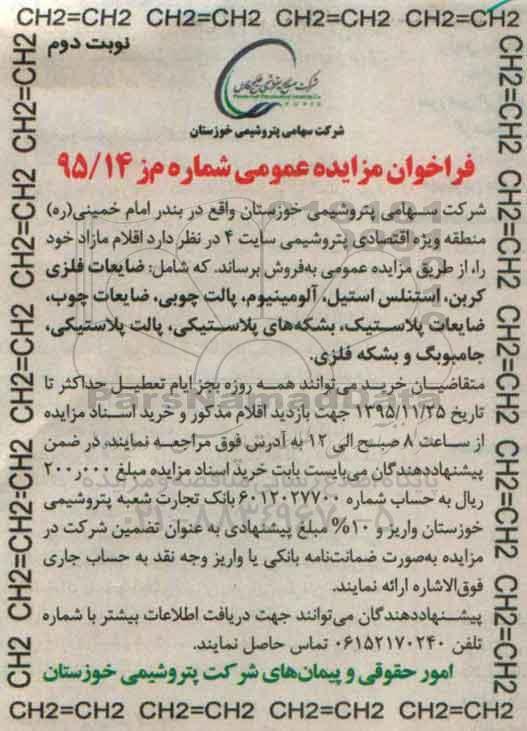 CH2=CH2 CH2=CH2 CH2=CH2 CH2=CH2
نوبت دوم
شرکت سهامی پتروشیمی خوزستان
فراخوان مزایده عمومی شماره م‌ز ۹۵/۱۴
شرکت سهامی پتروشیمی خوزستان واقع در بندر امام خمینی(ره)
منطقه ویژه اقتصادی پتروشیمی سایت ۴ در نظر دارد اقلام مازاد خود
را، از طریق مزایده عمومی به‌فروش برساند. که شامل: ضایعات فلزی
کربن، استنلس استیل، آلومینیوم، پالت چوبی، ضایعات چوب،
ضایعات پلاستیک، بشکه‌های پلاستیکی، پالت پلاستیکی،
جامبوبگ و بشکه فلزی.
متقاضیان خرید می‌توانند همه روزه بجز ایام تعطیل حداکثر تا
تاریخ ۱۳۹۵/۱۱/۲۵ جهت بازدید اقلام مذکور و خرید اسناد مزایده
از ساعت ۸ صبح الی ۱۲ به آدرس فوق مراجعه نمایند. در ضمن
پیشنهاددهندگان می‌بایست بابت خرید اسناد مزایده مبلغ ۲۰۰٫۰۰۰
ریال به حساب شماره ۶۰۱۲۰۲۷۷۰۰ بانک تجارت شعبه پتروشیمی
خوزستان واریز و ۱۰% مبلغ پیشنهادی به عنوان تضمین شرکت در
مزایده به‌صورت ضمانت‌نامه بانکی یا واریز وجه نقد به حساب جاری
فوق‌الاشاره ارائه نمایند.
پیشنهاددهندگان می‌توانند جهت دریافت اطلاعات بیشتر با شماره
تلفن ۰۶۱۵۲۱۷۰۲۴۰ تماس حاصل نمایند.
امور حقوقی و پیمان‌های شرکت پتروشیمی خوزستان
CH2=CH2 CH2=CH2 CH2=CH2 CH2=CH2
CH2 CH2=CH2 CH2=CH2 CH2=CH2 CH2=CH2
CH2=CH2 CH2=CH2 CH2=CH2 CH2=CH2
ParsNamadData